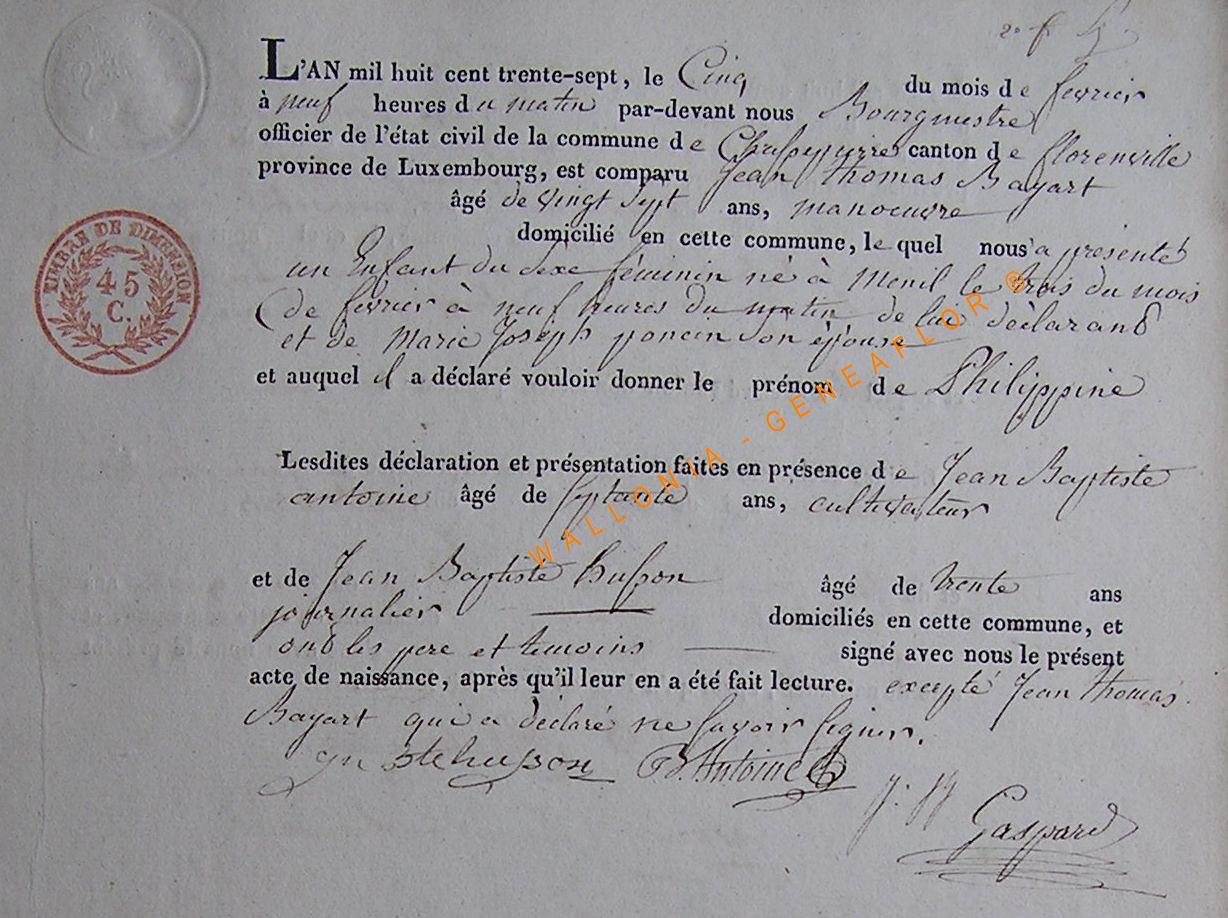 L'AN mil huit cent trente-sept, le Cinq du mois de fevrier
à neuf heures du matin par-devant nous Bourgmestre
officier de l'état civil de la commune de canton de florenville
province de Luxembourg, est comparu Jean thomas Bayart
âgé de vingt sept ans, manoeuvre
domicilié en cette commune, le quel nous a présenté
un Enfant du sexe féminin né à Menil le trois du mois
de fevrier à neuf heures du matin de lui déclarant
et de Marie Joseph poncin son épouse
et auquel il a déclaré vouloir donner le prénom de Philippine
Lesdites déclaration et présentation faites en présence de Jean Baptiste
antoine âgé de septante ans, cultivateur
et de Jean Baptiste husson âgé de trente ans
journalier domiciliés en cette commune, et
ont les pere et temoins signé avec nous le présent
acte de naissance, après qu'il leur en a été fait lecture. excepté Jean thomas
Bayart qui a déclaré ne savoir signer.
husson Antoine
Gaspard
TIMBRE DE DIMENSION
45
C.
WALLONIA - GENEAFLOR ®